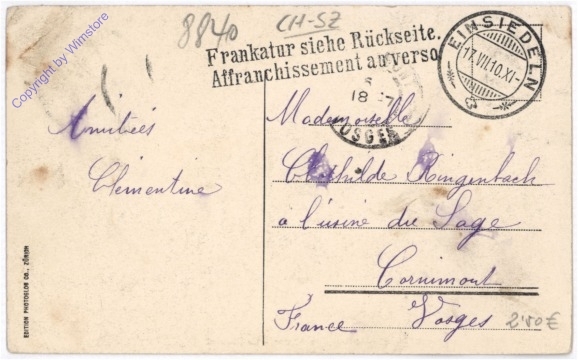 Copyright by Wimstore
8840
CH-SZ
Frankatur siehe Rückseite.
Affranchissement au verso
EINSIEDELN
17.VII.10.XI-
18 -7
VOSGES
Amitiés
Clémentine
Mademoiselle
Clothilde Ringenbach
à l'usine du Sage
Cornimont
Vosges
France
2'50€
EDITION PHOTOGLOB CO., ZÜRICH